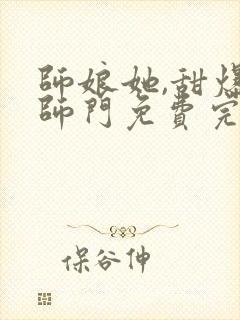 師娘她,甜爆
師門免費完
保谷伸